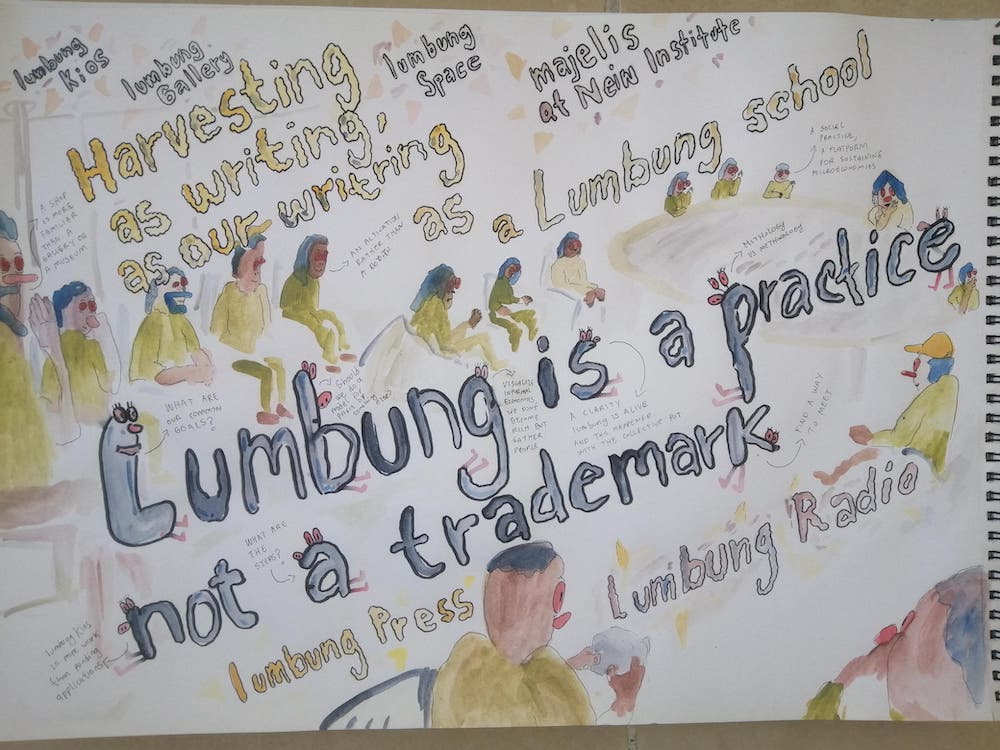 lumbung
Kios
lumbung
Gallery
lumbung
Space
majelis
at New Institute
Harvesting
as writing,
as our writring
as a Lumbung school
A SOCIAL
PRACTICE,
A PLATFORM
FOR SUSTAINING
MICROECONOMIES
A SHOP
IS MORE
FAMILIAR
THAN A
GALLERY OR
A MUSEUM
AN ACTIVATION
RATHER THAN
A BOOTH
MITHOLOGY
VS METHODOLOGY
Lumbung is a practice
not a trademark
WHAT ARE
OUR COMMON
GOALS?
Should
we do a
VISUALIZE
INFORMAL
ECONOMIES
WE DONT
BECOME
RICH BUT
GATHER
PEOPLE
A CLARITY
lUMBUNG IS ALIVE
AND THIS HAPPENED
WITH THE COLLECTIVE BUT
FIND A WAY
TO MEET
WHAT ARE
THE
STEPS?
lumbung Kios
is more work
than finding
applications
lumbung Press
Lumbung Radio